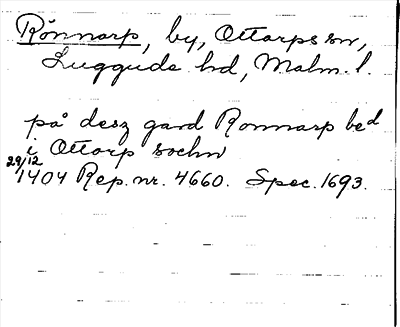 Rönnarp, by, Ottarps sn,
Luggude hd, Malm. l.
på desz gard Ronnarp bed
i Ottorp sochn
29/12
1404 Rep. nr. 4660. Spec. 1693.